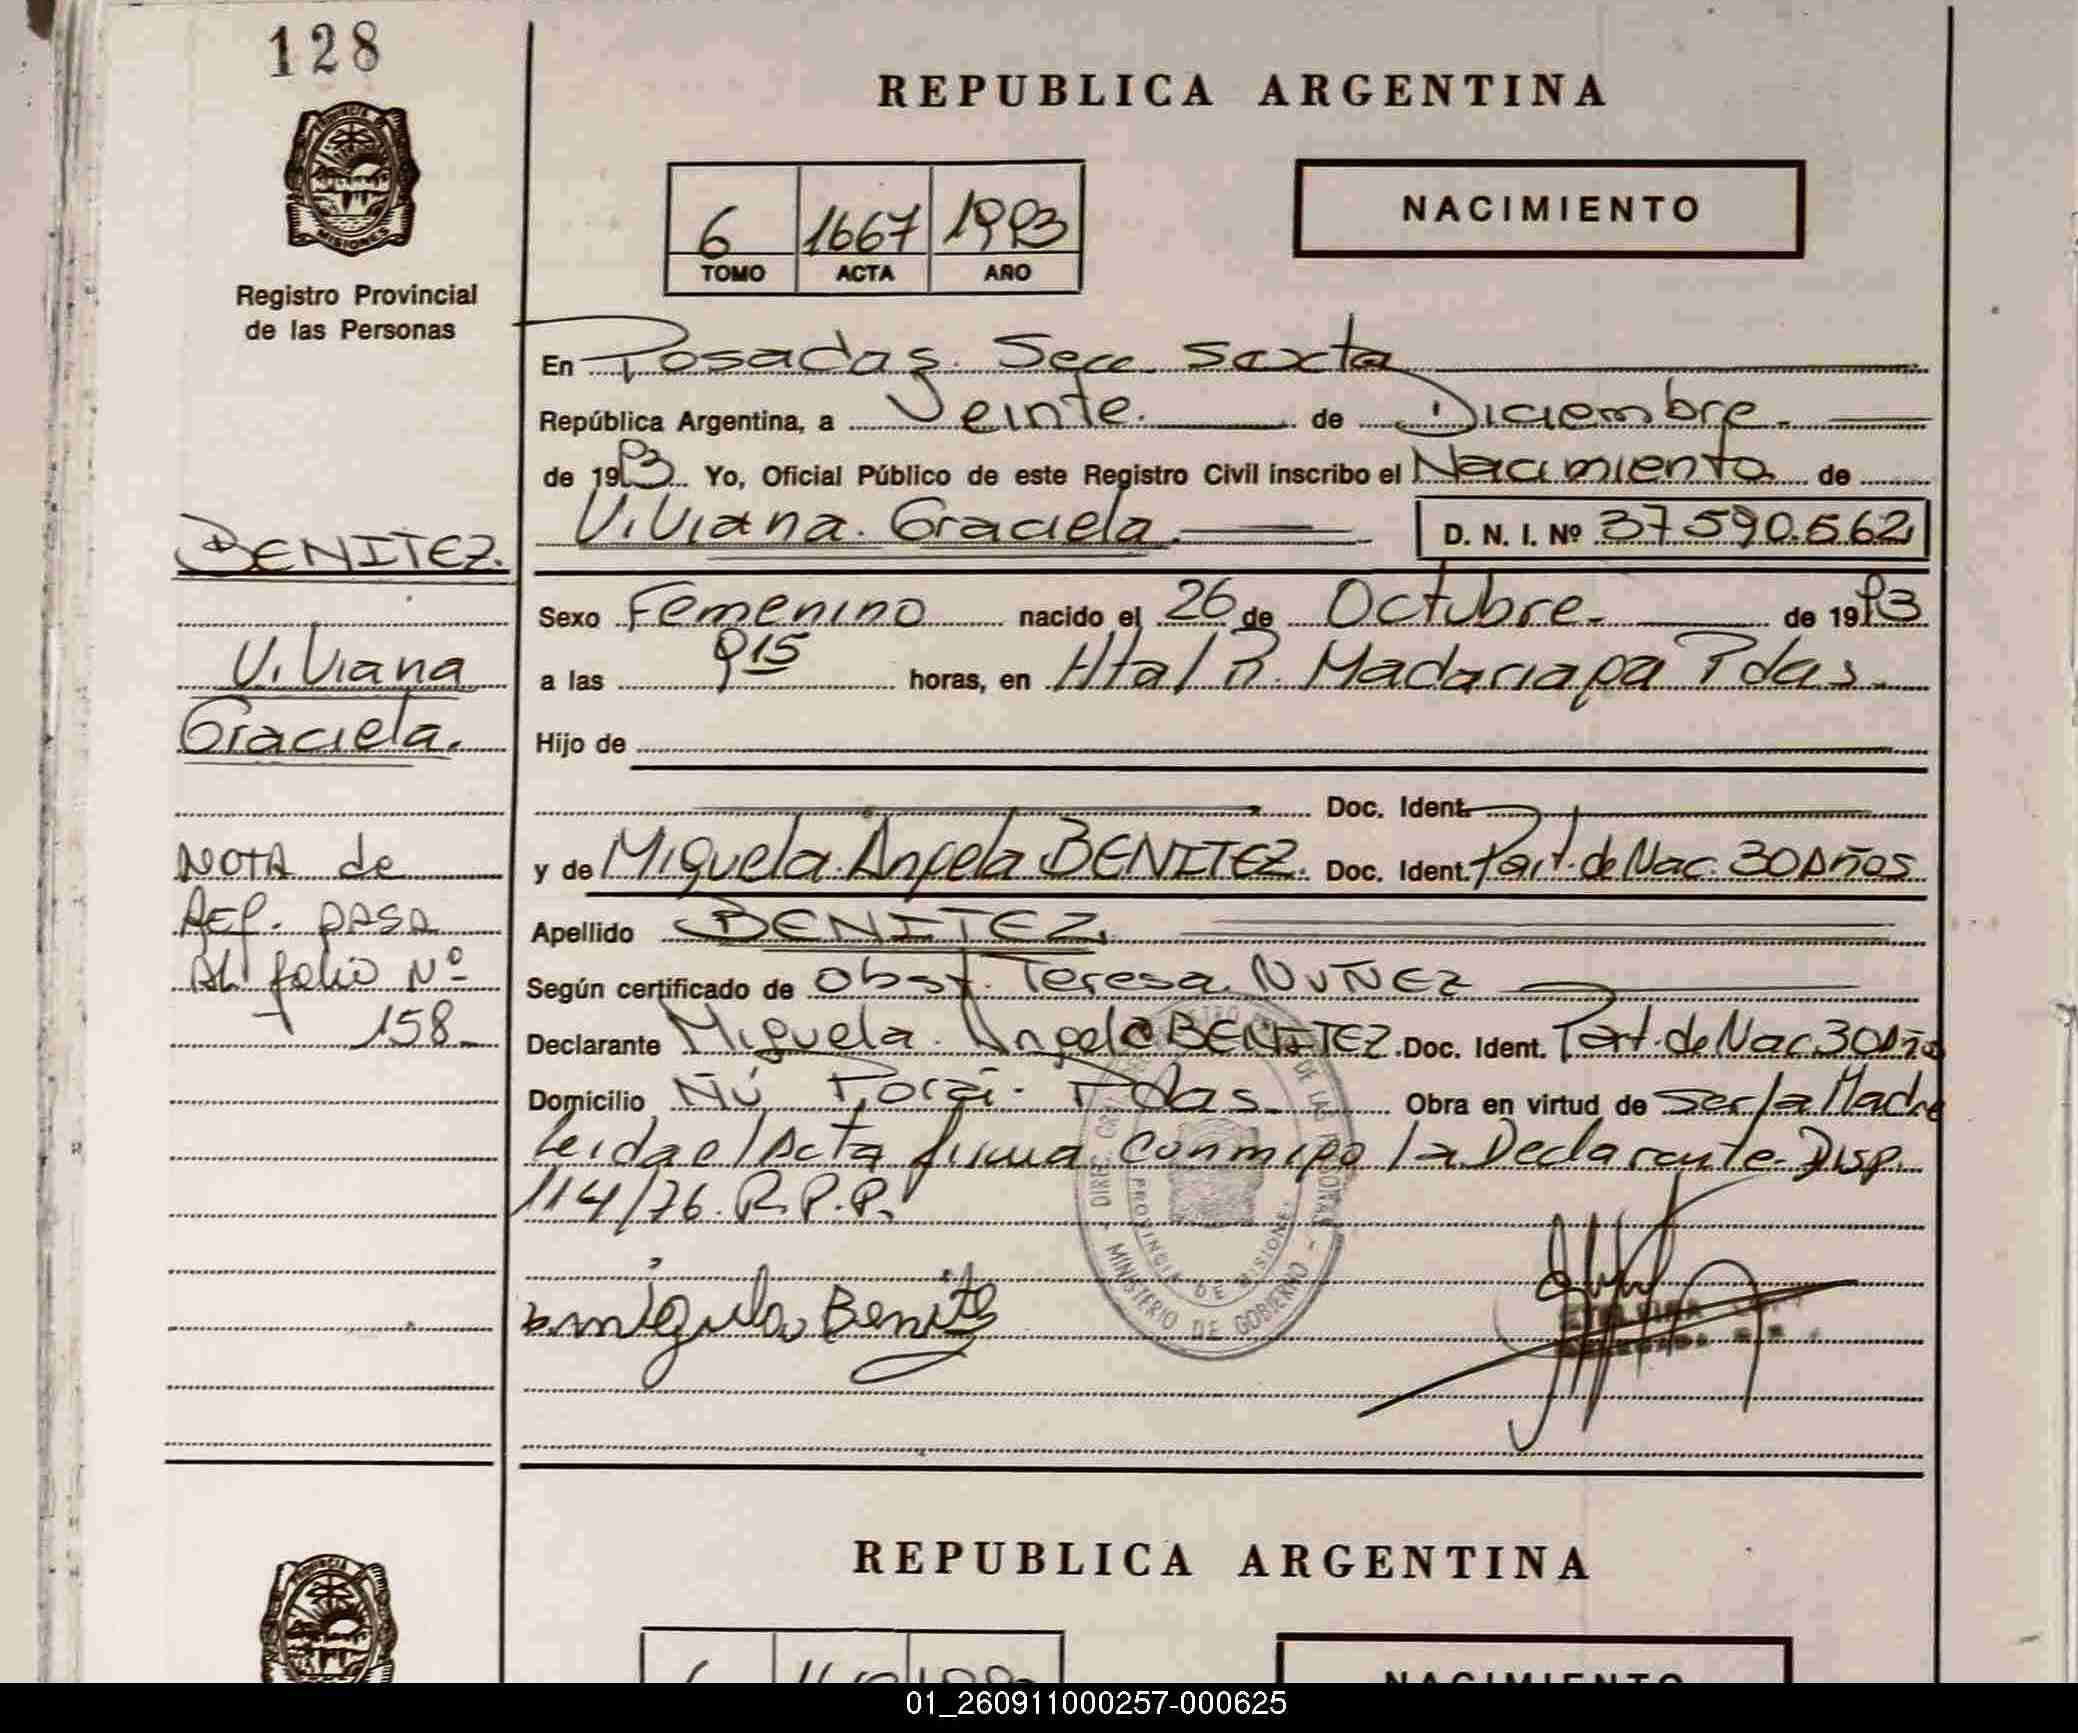 128
REPUBLICA ARGENTINA
PROVINCIA
MISIONES
6 1667 1993
TOMO ACTA AÑO
NACIMIENTO
Registro Provincial
de las Personas
En Posadas. Secc. Sexta
República Argentina, a Veinte. de Diciembre.
de 1993. Yo, Oficial Público de este Registro Civil inscribo el Nacimiento de
Viviana. Graciela. D. N. I. Nº 37590.562
BENITEZ.
Viviana
Graciela.
Sexo Femenino nacido el 26 de Octubre. de 1993
a las 9 15 horas, en Htal R. Madariaga Pdas.
Hijo de
Doc. Ident.
y de Miguela. Angela BENITEZ. Doc. Ident. Part. de Nac. 30 Años
Apellido BENITEZ.
Según certificado de Obst. Teresa NUÑEZ
Declarante Miguela. Angela BENITEZ. Doc. Ident. Part. de Nac 30 Años
Domicilio Ñú Porai. Pdas. Obra en virtud de Ser la Madre
Leida el Acta firma conmigo la Declarante. Disp.
114/76. R.P.P.
NOTA de
REF. PASA
AL folio Nº
158
Miguela Benitez
PROVINCIA DE MISIONES
MINISTERIO DE GOBIERNO
REPUBLICA ARGENTINA
NACIMIENTO
01_260911000257-000625